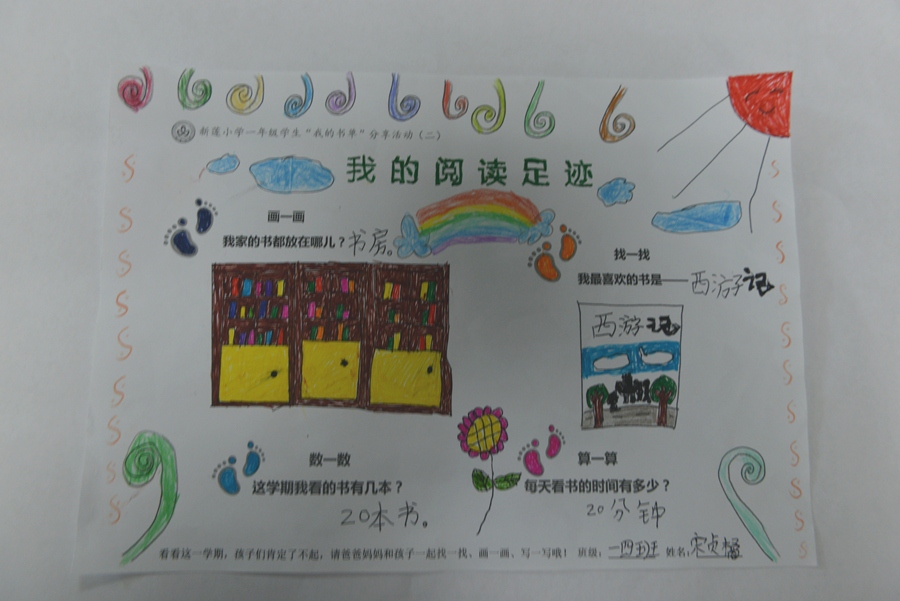 新莲小学一年级学生“我的书单”分享活动（二）
我的阅读足迹
画一画
我家的书都放在哪儿？书房。
找一找
我最喜欢的书是——西游记
西游记
数一数
这学期我看的书有几本？
20本书。
算一算
每天看书的时间有多少？
20分钟
看看这一学期，孩子们肯定了不起，请爸爸妈妈和孩子一起找一找、画一画、写一写哦！ 班级：一四班 姓名：宋贞橘